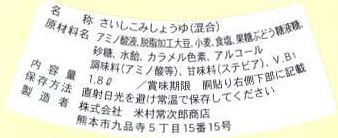 名 称 さいしこみしょうゆ(混合)
原材料名 アミノ酸液、脱脂加工大豆、小麦、食塩、果糖ぶどう糖液糖、
砂糖、水飴、カラメル色素、アルコール
調味料(アミノ酸等)、甘味料(ステビア)、V.B1
内 容 量 1.8ℓ /賞味期限 胴貼り右側下部に記載
保存方法 直射日光を避け常温で保存してください
製 造 者 株式会社 米村常次郎商店
熊本市九品寺5丁目15番15号